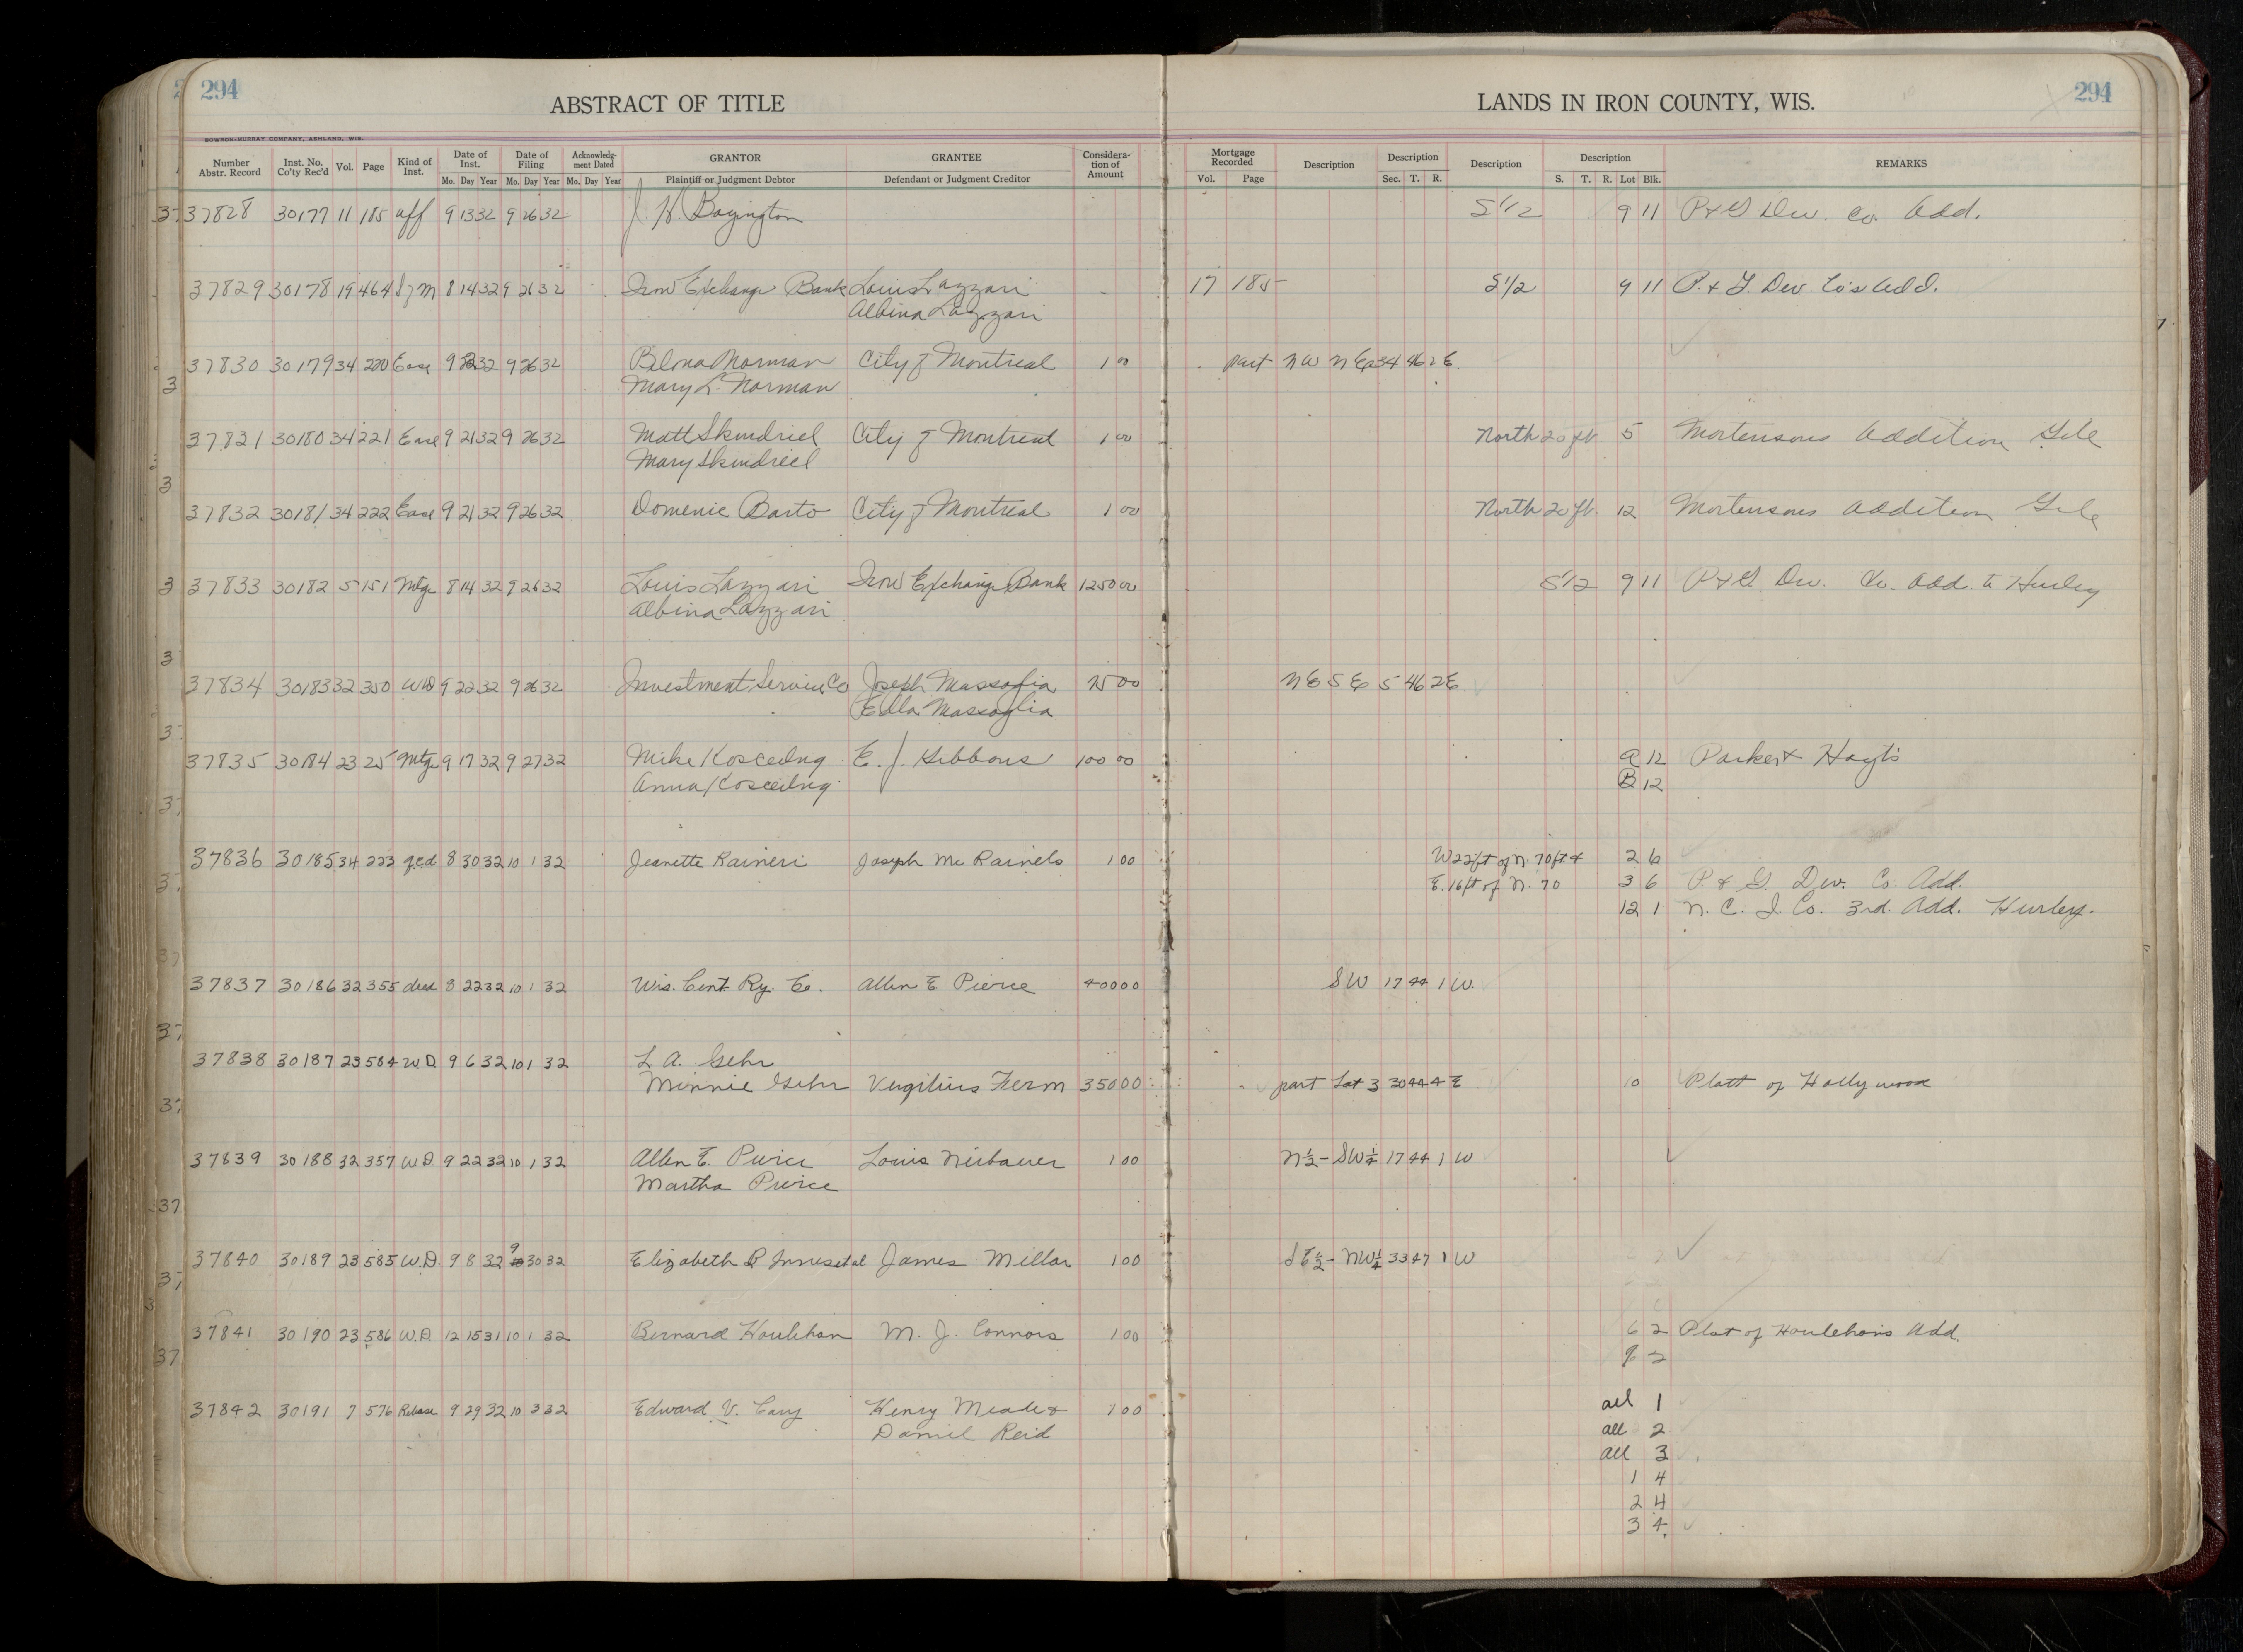 294
ABSTRACT OF TITLE
LANDS IN IRON COUNTY, WIS.
294
BOWRON-MURRAY COMPANY, ASHLAND, WIS.
Number Abstr. Record Inst. No. Co'ty Rec'd Vol. Page Kind of Inst. Date of Inst. Date of Filing Acknowledgment Dated GRANTOR GRANTEE Consideration of Amount Mortgage Recorded Description Description Description Description REMARKS
Mo. Day Year Mo. Day Year Mo. Day Year Plaintiff or Judgment Debtor Defendant or Judgment Creditor Vol. Page Sec. T. R. S. T. R. Lot Blk.
37828 30177 11 185 aff 9 13 32 9 26 32 J. H. Boyington S 1/2 9 11 P & G Dev. Co. Add.
37829 30178 19 464 8 14 32 9 26 32 Iron Exchange Bank Louis Lazzari 17 185 S 1/2 9 11 P. & G. Dev. Co's Add.
Albina Lazzari
37830 30179 34 220 Ease 9 22 32 9 26 32 Norman City of Montreal 1 00 part NW NE 34 46 2E
Mary L. Norman
37831 30180 34 221 Ease 9 21 32 9 26 32 Matt Skindriel City of Montreal 1 00 North 20 ft. 5 Mortensons Addition Gile
Mary Skindriel
37832 30181 34 222 Ease 9 21 32 9 26 32 Domenic Barto City of Montreal 1 00 North 20 ft. 12 Mortensons Addition Gile
37833 30182 5 151 Mtge 8 14 32 9 26 32 Louis Lazzari Iron Exchange Bank 1250 00 S 1/2 9 11 P & G Dev. Co. Add. to Hurley
Albina Lazzari
37834 30183 32 350 WD 9 22 32 9 26 32 Investment Service Co Joseph Massoglia 75 00 NE SE 5 46 2E
Edla Massoglia
37835 30184 23 25 Mtge 9 17 32 9 27 32 Mike E. J. Gibbons 100 00 A 12 Parker & Hoyt's
Anna B 12
37836 30185 34 223 qcd 8 30 32 10 1 32 Jeanette Raineri Joseph Mc Rainels 1 00 W 22 ft of N. 70 ft & 2 6
E. 16 ft of N. 70 3 6 P. & G. Dev. Co. Add.
12 1 N. C. I. Co. 3rd. Add. Hurley.
37837 30186 32 355 deed 8 22 32 10 1 32 Wis. Cent Ry. Co. Allen E Pierce 400 00 SW 17 44 1 W.
37838 30187 23 584 W.D 9 6 32 10 1 32 L. A. Gehr
Minnie Gehr Vergilius Ferm 350 00 part Lot 3 30 44 4 E 10 Platt of Hollywood
37839 30188 32 357 W.D. 9 22 32 10 1 32 Allen E. Pierce Louis Niebauer 1 00 N 1/2 - SW 1/4 17 44 1 W
Martha Pierce
37840 30189 23 585 W.D. 9 8 32 9 30 32 Elizabeth James Millar 1 00 NW 1/4 33 47 1 W
37841 30190 23 586 W.D. 12 15 31 10 1 32 Bernard Houlehan M. J. Connors 1 00 6 2 Plat of Houlehan's Add.
9 2
37842 30191 7 576 Release 9 29 32 10 3 32 Edward V. Cary Henry Meade & 1 00 all 1
Daniel Reid all 2
all 3
1 4
2 4
3 4